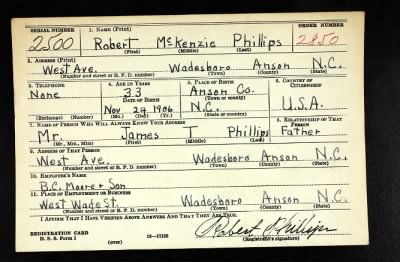 SERIAL NUMBER 1. NAME (Print) ORDER NUMBER
2500 Robert McKenzie Phillips 2850
(First) (Middle) (Last)
2. ADDRESS (Print)
West Ave. Wadesboro Anson N.C.
(Number and street or R. F. D. number) (Town) (County) (State)
3. TELEPHONE 4. AGE IN YEARS 5. PLACE OF BIRTH 6. COUNTRY OF CITIZENSHIP
None 33 Anson Co.
DATE OF BIRTH (Town or county)
Nov 24 1906 N.C. U.S.A.
(Exchange) (Number) (Mo.) (Day) (Yr.) (State or country)
7. NAME OF PERSON WHO WILL ALWAYS KNOW YOUR ADDRESS 8. RELATIONSHIP OF THAT PERSON
Mr. James T Phillips Father
(Mr., Mrs., Miss) (First) (Middle) (Last)
9. ADDRESS OF THAT PERSON
West Ave. Wadesboro Anson N.C.
(Number and street or R. F. D. number) (Town) (County) (State)
10. EMPLOYER'S NAME
B.C. Moore & Son
11. PLACE OF EMPLOYMENT OR BUSINESS
West Wade St. Wadesboro Anson N.C.
(Number and street or R. F. D. number) (Town) (County) (State)
I AFFIRM THAT I HAVE VERIFIED ABOVE ANSWERS AND THAT THEY ARE TRUE.
REGISTRATION CARD Robert Phillips
D. S. S. Form 1 (over) 16—17105 (Registrant's signature)